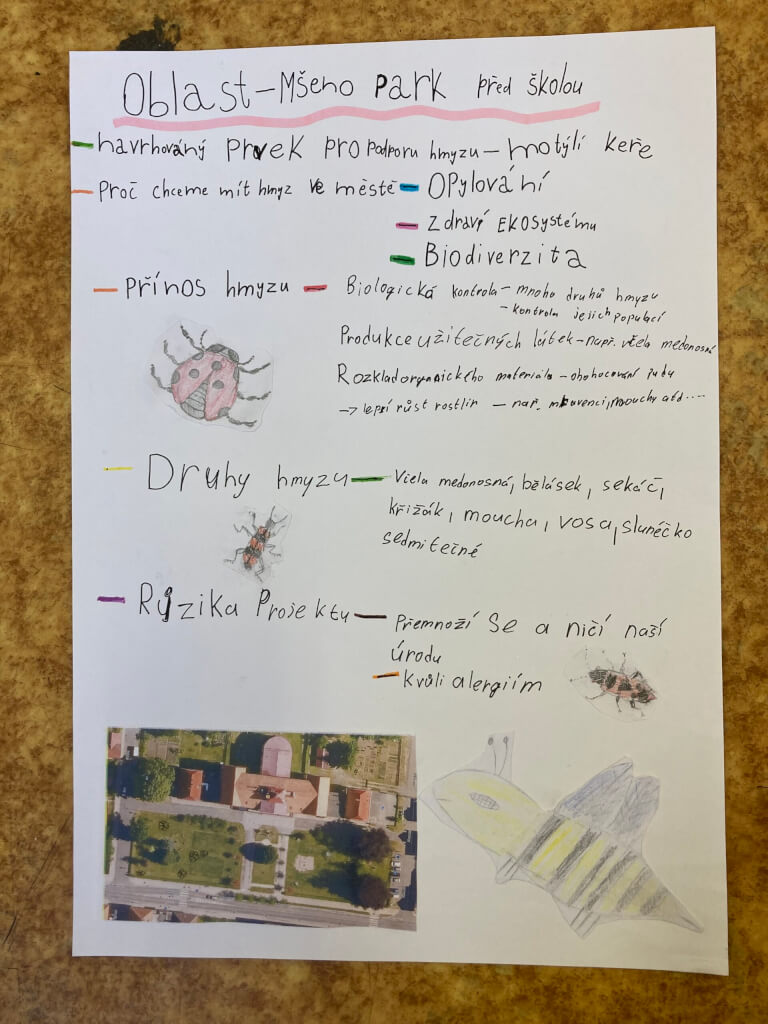 Oblast – Mšeno park před školou
– navrhovaný prvek pro podporu hmyzu – motýlí keře
– Proč chceme mít hmyz ve městě – Opylování
– zdraví ekosystému
– Biodiverzita
– přínos hmyzu – Biologická kontrola – mnoho druhů hmyzu
– kontrola jejich populací
Produkce užitečných látek – např. včela medonosná
Rozklad organického materiálu – obohacování půdy
→ lepší růst rostlin – např. mravenci, mouchy atd....
– Druhy hmyzu – Včela medonosná, bělásek, sekáč,
křižák, moucha, vosa, slunéčko
sedmitečné
– Ryzika Projektu – Přemnoží se a ničí naší
úrodu
– kvůli alergiím